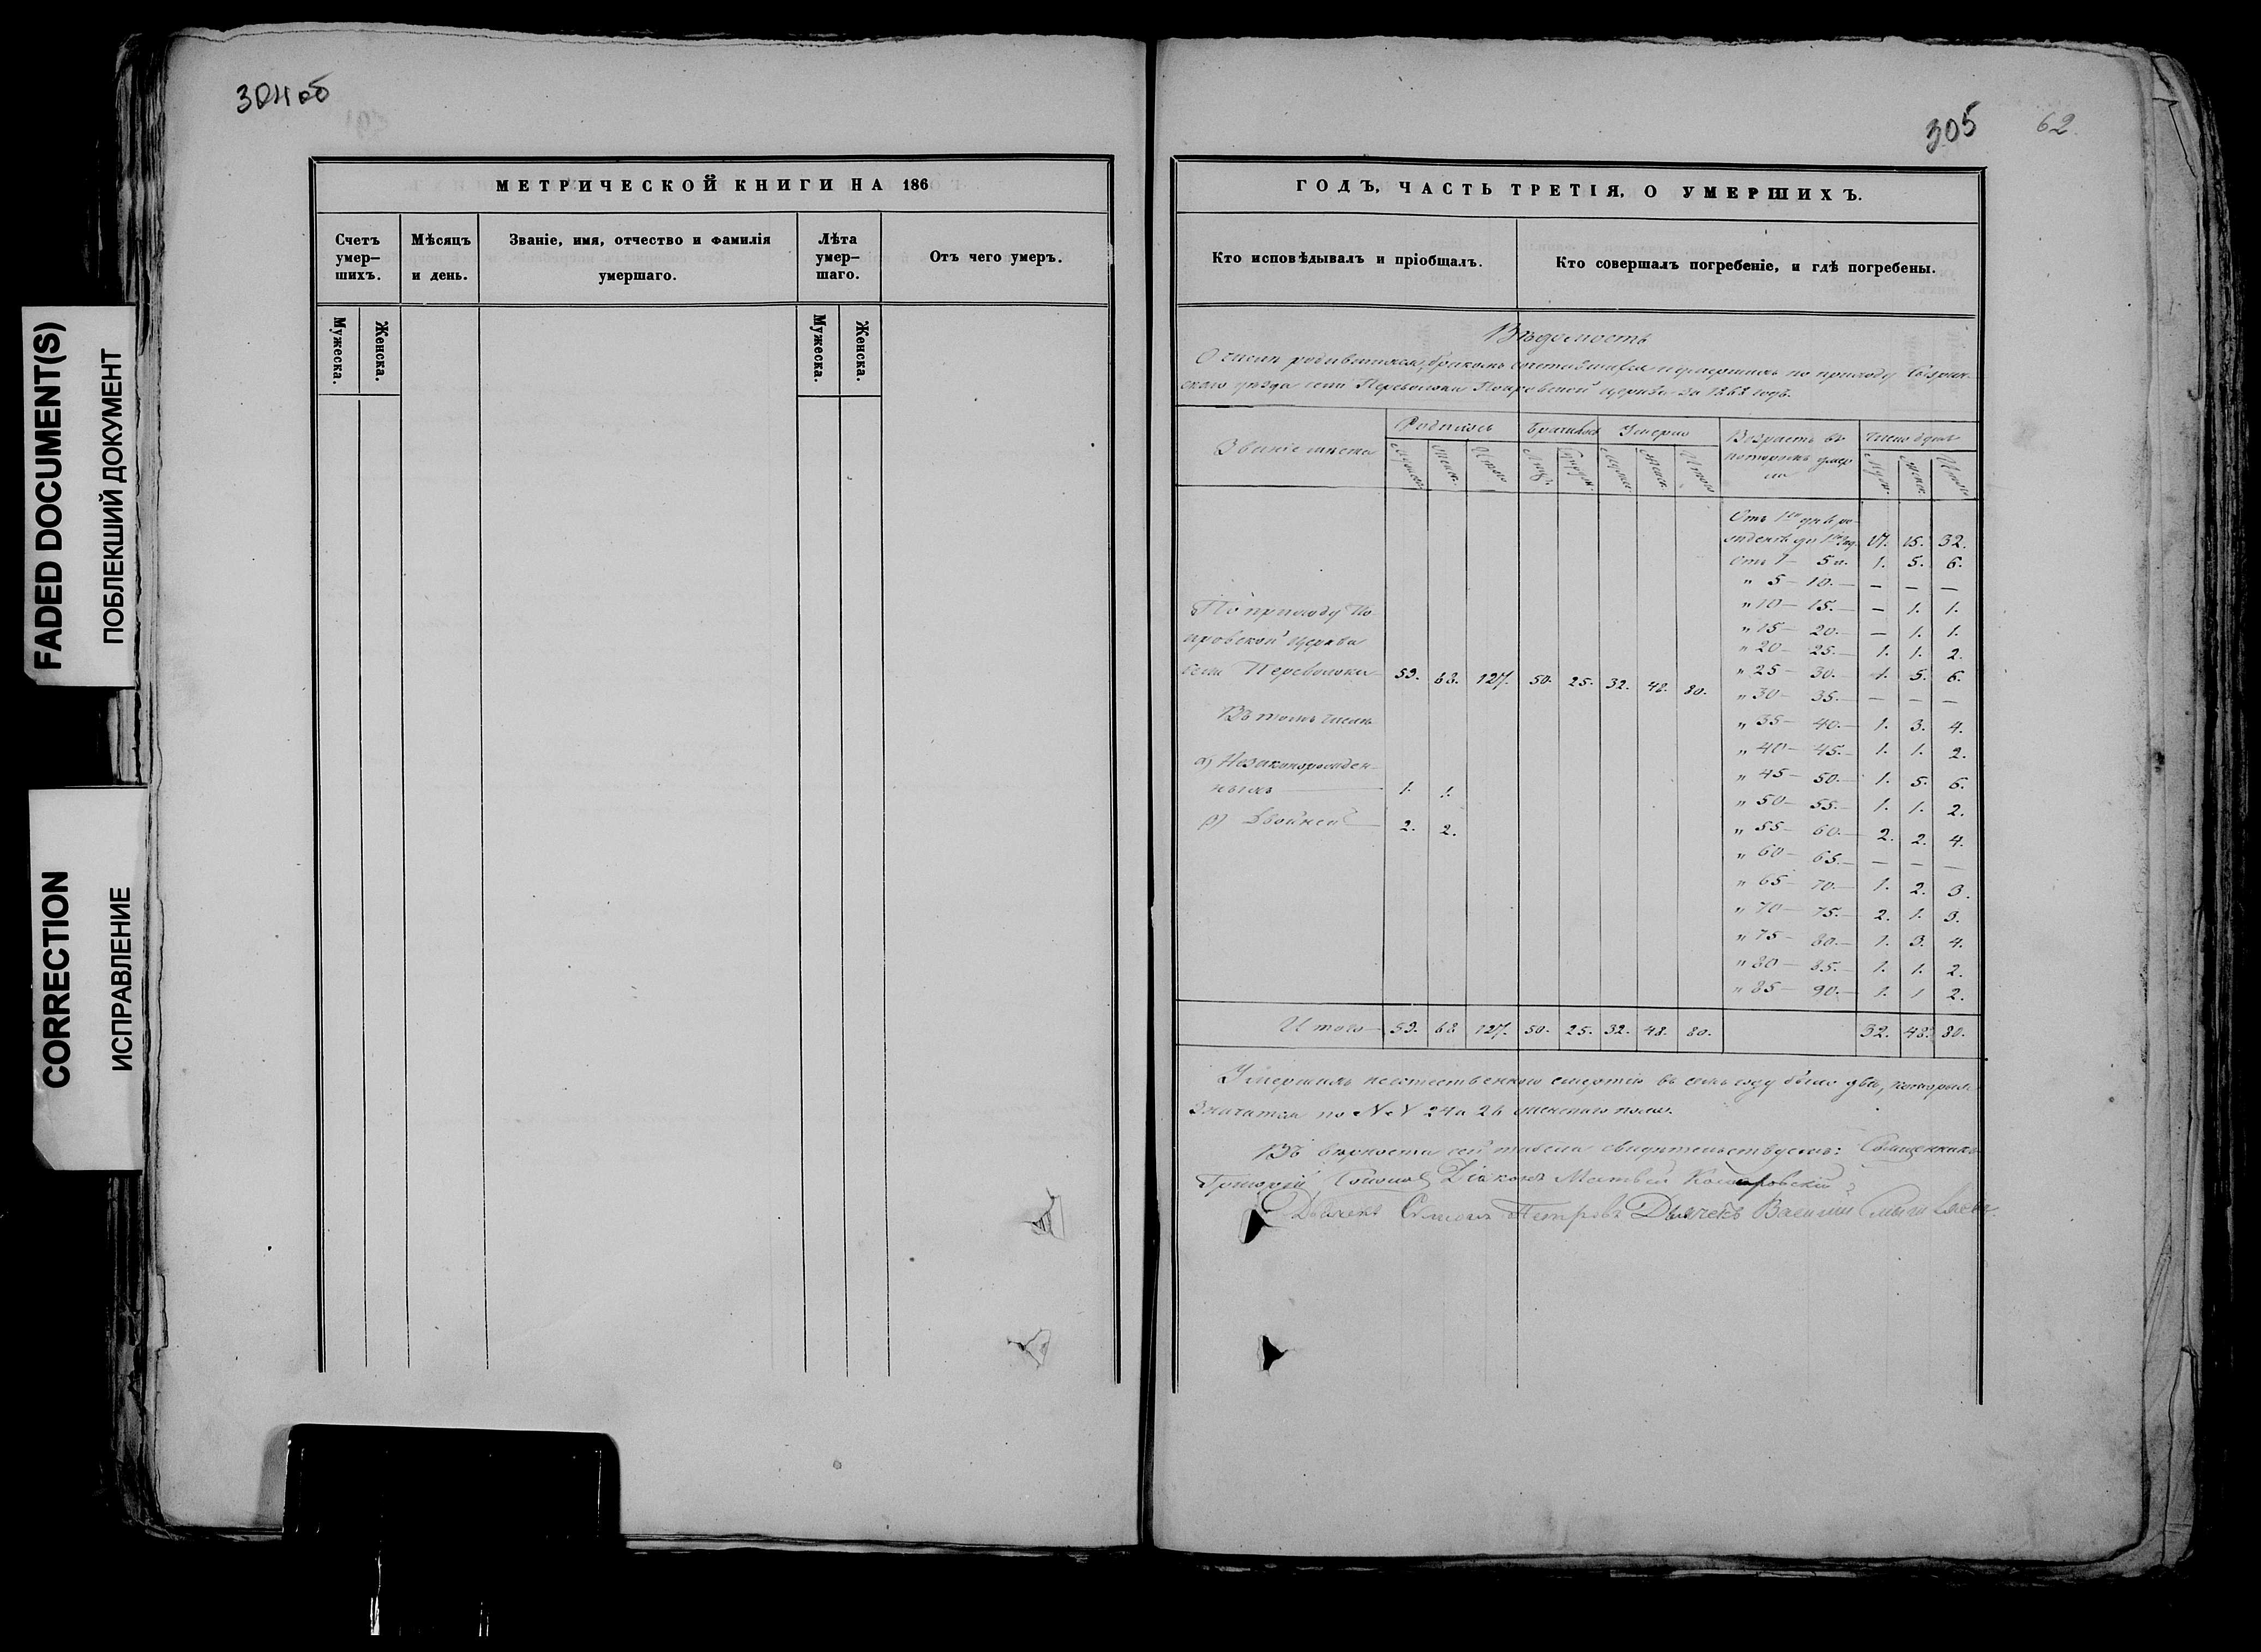 304 об
305
62.
FADED DOCUMENT(S)
ПОБЛЕКШИЙ ДОКУМЕНТ
CORRECTION
ИСПРАВЛЕНИЕ
МЕТРИЧЕСКОЙ КНИГИ НА 186
Счетъ умер–шихъ.
Мѣсяцъ и день.
Званіе, имя, отчество и фамилія умершаго.
Лѣта умер–шаго.
Отъ чего умеръ.
Мужеска.
Женска.
Мужеска.
Женска.
ГОДЪ, ЧАСТЬ ТРЕТІЯ, О УМЕРШИХЪ.
Кто исповѣдывалъ и пріобщалъ.
Кто совершалъ погребеніе, и гдѣ погребены.
Вѣдомость
О числѣ родившихся, бракомъ сочетавшихся и умершихъ по приходу Сызран–
скаго уѣзда села Переволоки Покровской церкви за 1868 годъ.
Званіе мѣста
Родилось
Браковъ
Умерло
Возрастъ въ
которомъ умер
ли
Число душъ
Отъ 1го дня ро–
жденія до 1го год. 17. 15. 32.
Отъ 1 – 5 л. 1. 5. 6.
" 5 – 10. – – – –
" 10 – 15. – – 1. 1.
" 15 – 20. – – 1. 1.
" 20 – 25. – 1. 1. 2.
" 25 – 30. – 1. 5. 6.
" 30 – 35. – – – –
" 35 – 40. – 1. 3. 4.
" 40 – 45. – 1. 1. 2.
" 45 – 50. – 1. 5. 6.
" 50 – 55. – 1. 1. 2.
" 55 – 60. – 2. 2. 4.
" 60 – 65. – – – –
" 65 – 70. – 1. 2. 3.
" 70 – 75. – 2. 1. 3.
" 75 – 80. – 1. 3. 4.
" 80 – 85. – 1. 1. 2.
" 85 – 90. – 1. 1 2.
По приходу По–
кровской церкви
села Переволоки 59. 68. 127. 50. 25. 32. 48. 80.
Въ томъ числѣ
а) Незаконорожден–
ныхъ 1. 1.
в) Двойней 2. 2.
Итого 59. 68 127. 50. 25. 32. 48. 80. 32. 48. 80.
Умершихъ неестественною смертію въ семъ году было двѣ, которыя
значатся по №№ 24 и 26 женскаго пола.
Въ вѣрности сей табели свидѣтельствуемъ: Священникъ
Григорій Діаконъ Матвѣй
Дьячекъ Симеонъ Петровъ Дьячекъ Василій